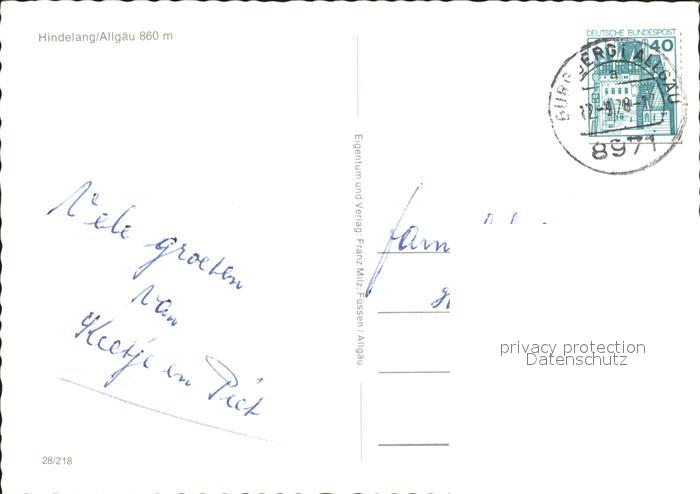 Hindelang/Allgäu 860 m
DEUTSCHE BUNDESPOST
40
BURGBERG I. ALLGÄU
a
8971
Vele groeten
van
Keetje en Piet
Eigentum und Verlag: Franz Milz, Füssen / Allgäu
fam
privacy protection
Datenschutz
28/218